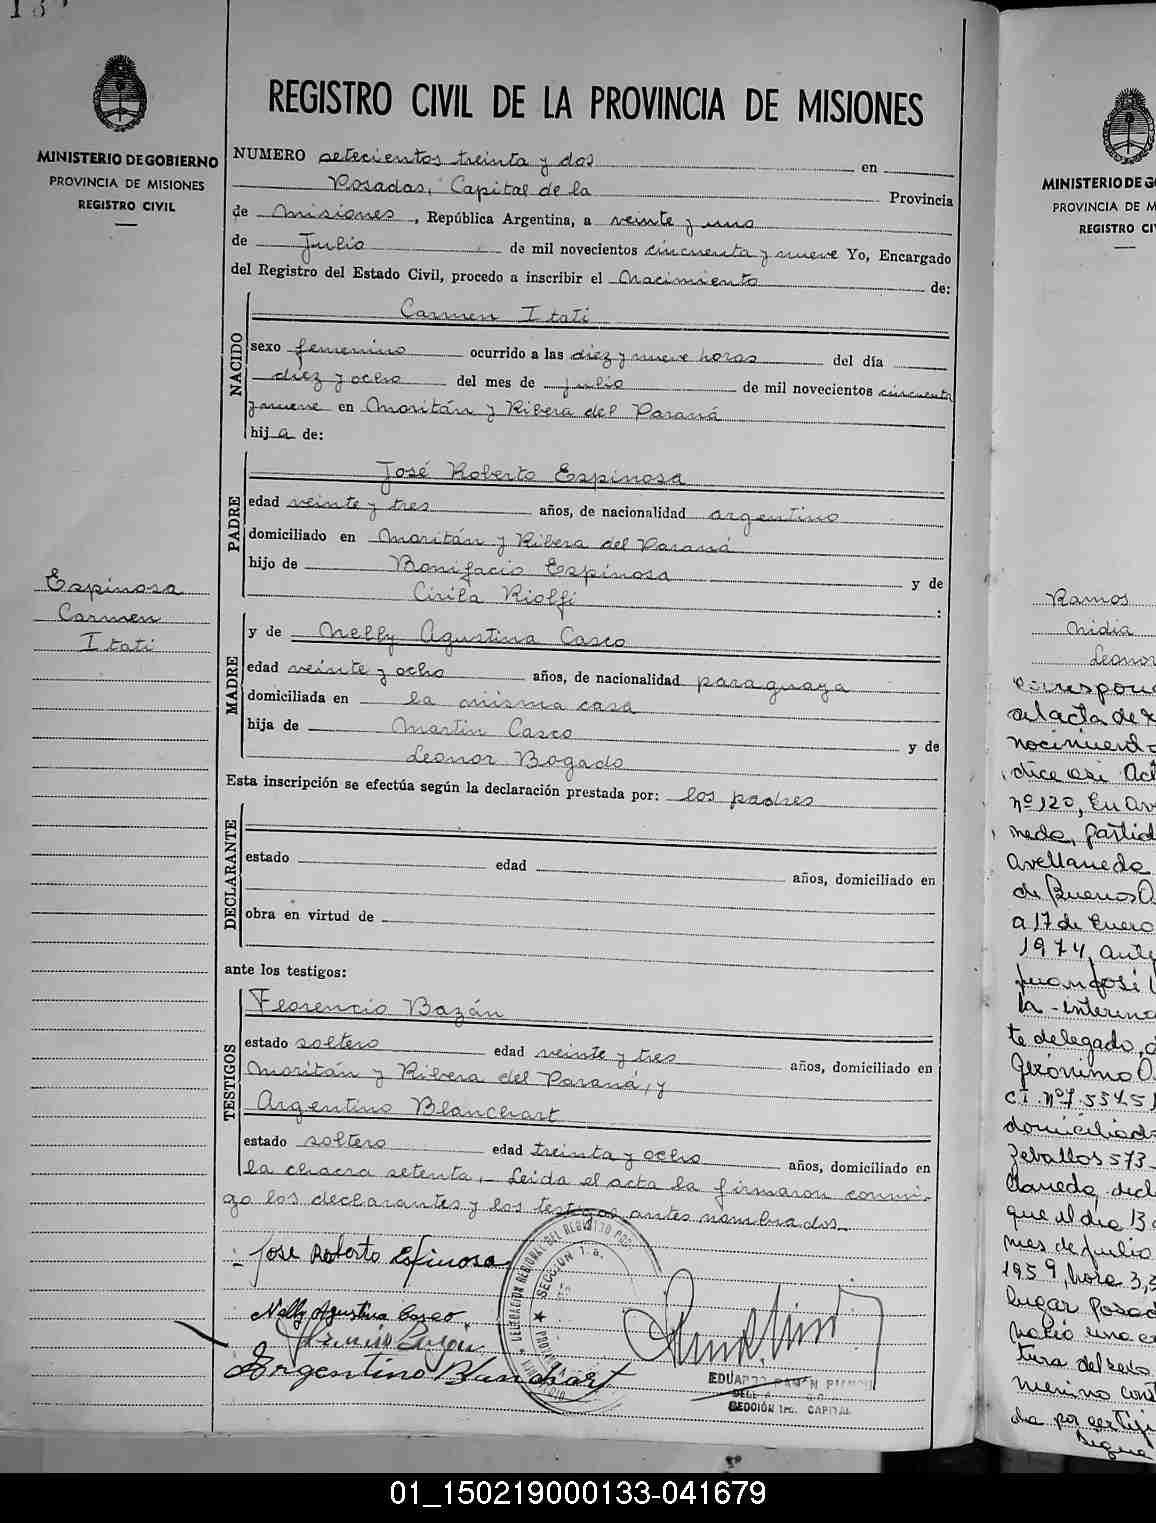 MINISTERIO DE GOBIERNO
PROVINCIA DE MISIONES
REGISTRO CIVIL
Espinosa
Carmen
Itatí
REGISTRO CIVIL DE LA PROVINCIA DE MISIONES
NUMERO setecientos treinta y dos en
Posadas, Capital de la Provincia
de Misiones, República Argentina, a veinte y uno
de Julio de mil novecientos cincuenta y nueve Yo, Encargado
del Registro del Estado Civil, procedo a inscribir el Nacimiento de:
NACIDO
Carmen Itatí
sexo femenino ocurrido a las diez y nueve horas del día
diez y ocho del mes de julio de mil novecientos cincuenta
y nueve en Moritán y Ribera del Paraná
hija de:
PADRE
José Roberto Espinosa
edad veinte y tres años, de nacionalidad argentino
domiciliado en Moritán y Ribera del Paraná
hijo de Bonifacio Espinosa y de
Cirila Riolfi :
MADRE
y de Nelly Agustina Casco
edad veinte y ocho años, de nacionalidad paraguaya
domiciliada en la misma casa
hija de Martín Casco y de
Leonor Bogado
Esta inscripción se efectúa según la declaración prestada por: los padres
DECLARANTE
estado edad años, domiciliado en
obra en virtud de
ante los testigos:
TESTIGOS
Florencio Bazán
estado soltero edad veinte y tres años, domiciliado en
Moritán y Ribera del Paraná, y
Argentino Blanchart
estado soltero edad treinta y ocho años, domiciliado en
la chacra setenta, - Leída el acta la firmaron conmi-
go los declarantes y los testigos antes nombrados.
Jose Roberto Espinosa
Nelly Agustina Casco
Argentino Blanchart
SECCION 1a.
EDUARDO
SECCIÓN 1ra. CAPITAL
MINISTERIO DE GO
PROVINCIA DE M
REGISTRO CI
Ramos
Nidia
Leonor
correspond
al acta de re
nocimiento
dice así Act
nº 120, En Av
neda, partid
Avellaneda
de Buenos A
a 17 de Enero
1974, ante
Juan José
la - interina
te delegado,
Gerónimo O
domiciliado
Zeballos 573
llaneda, decl
que el día 13
mes de Julio
1959, hora 3,3
lugar Posad
nació una c
tura del sexo
menino cons
da por certifi
Sigue
01_150219000133-041679